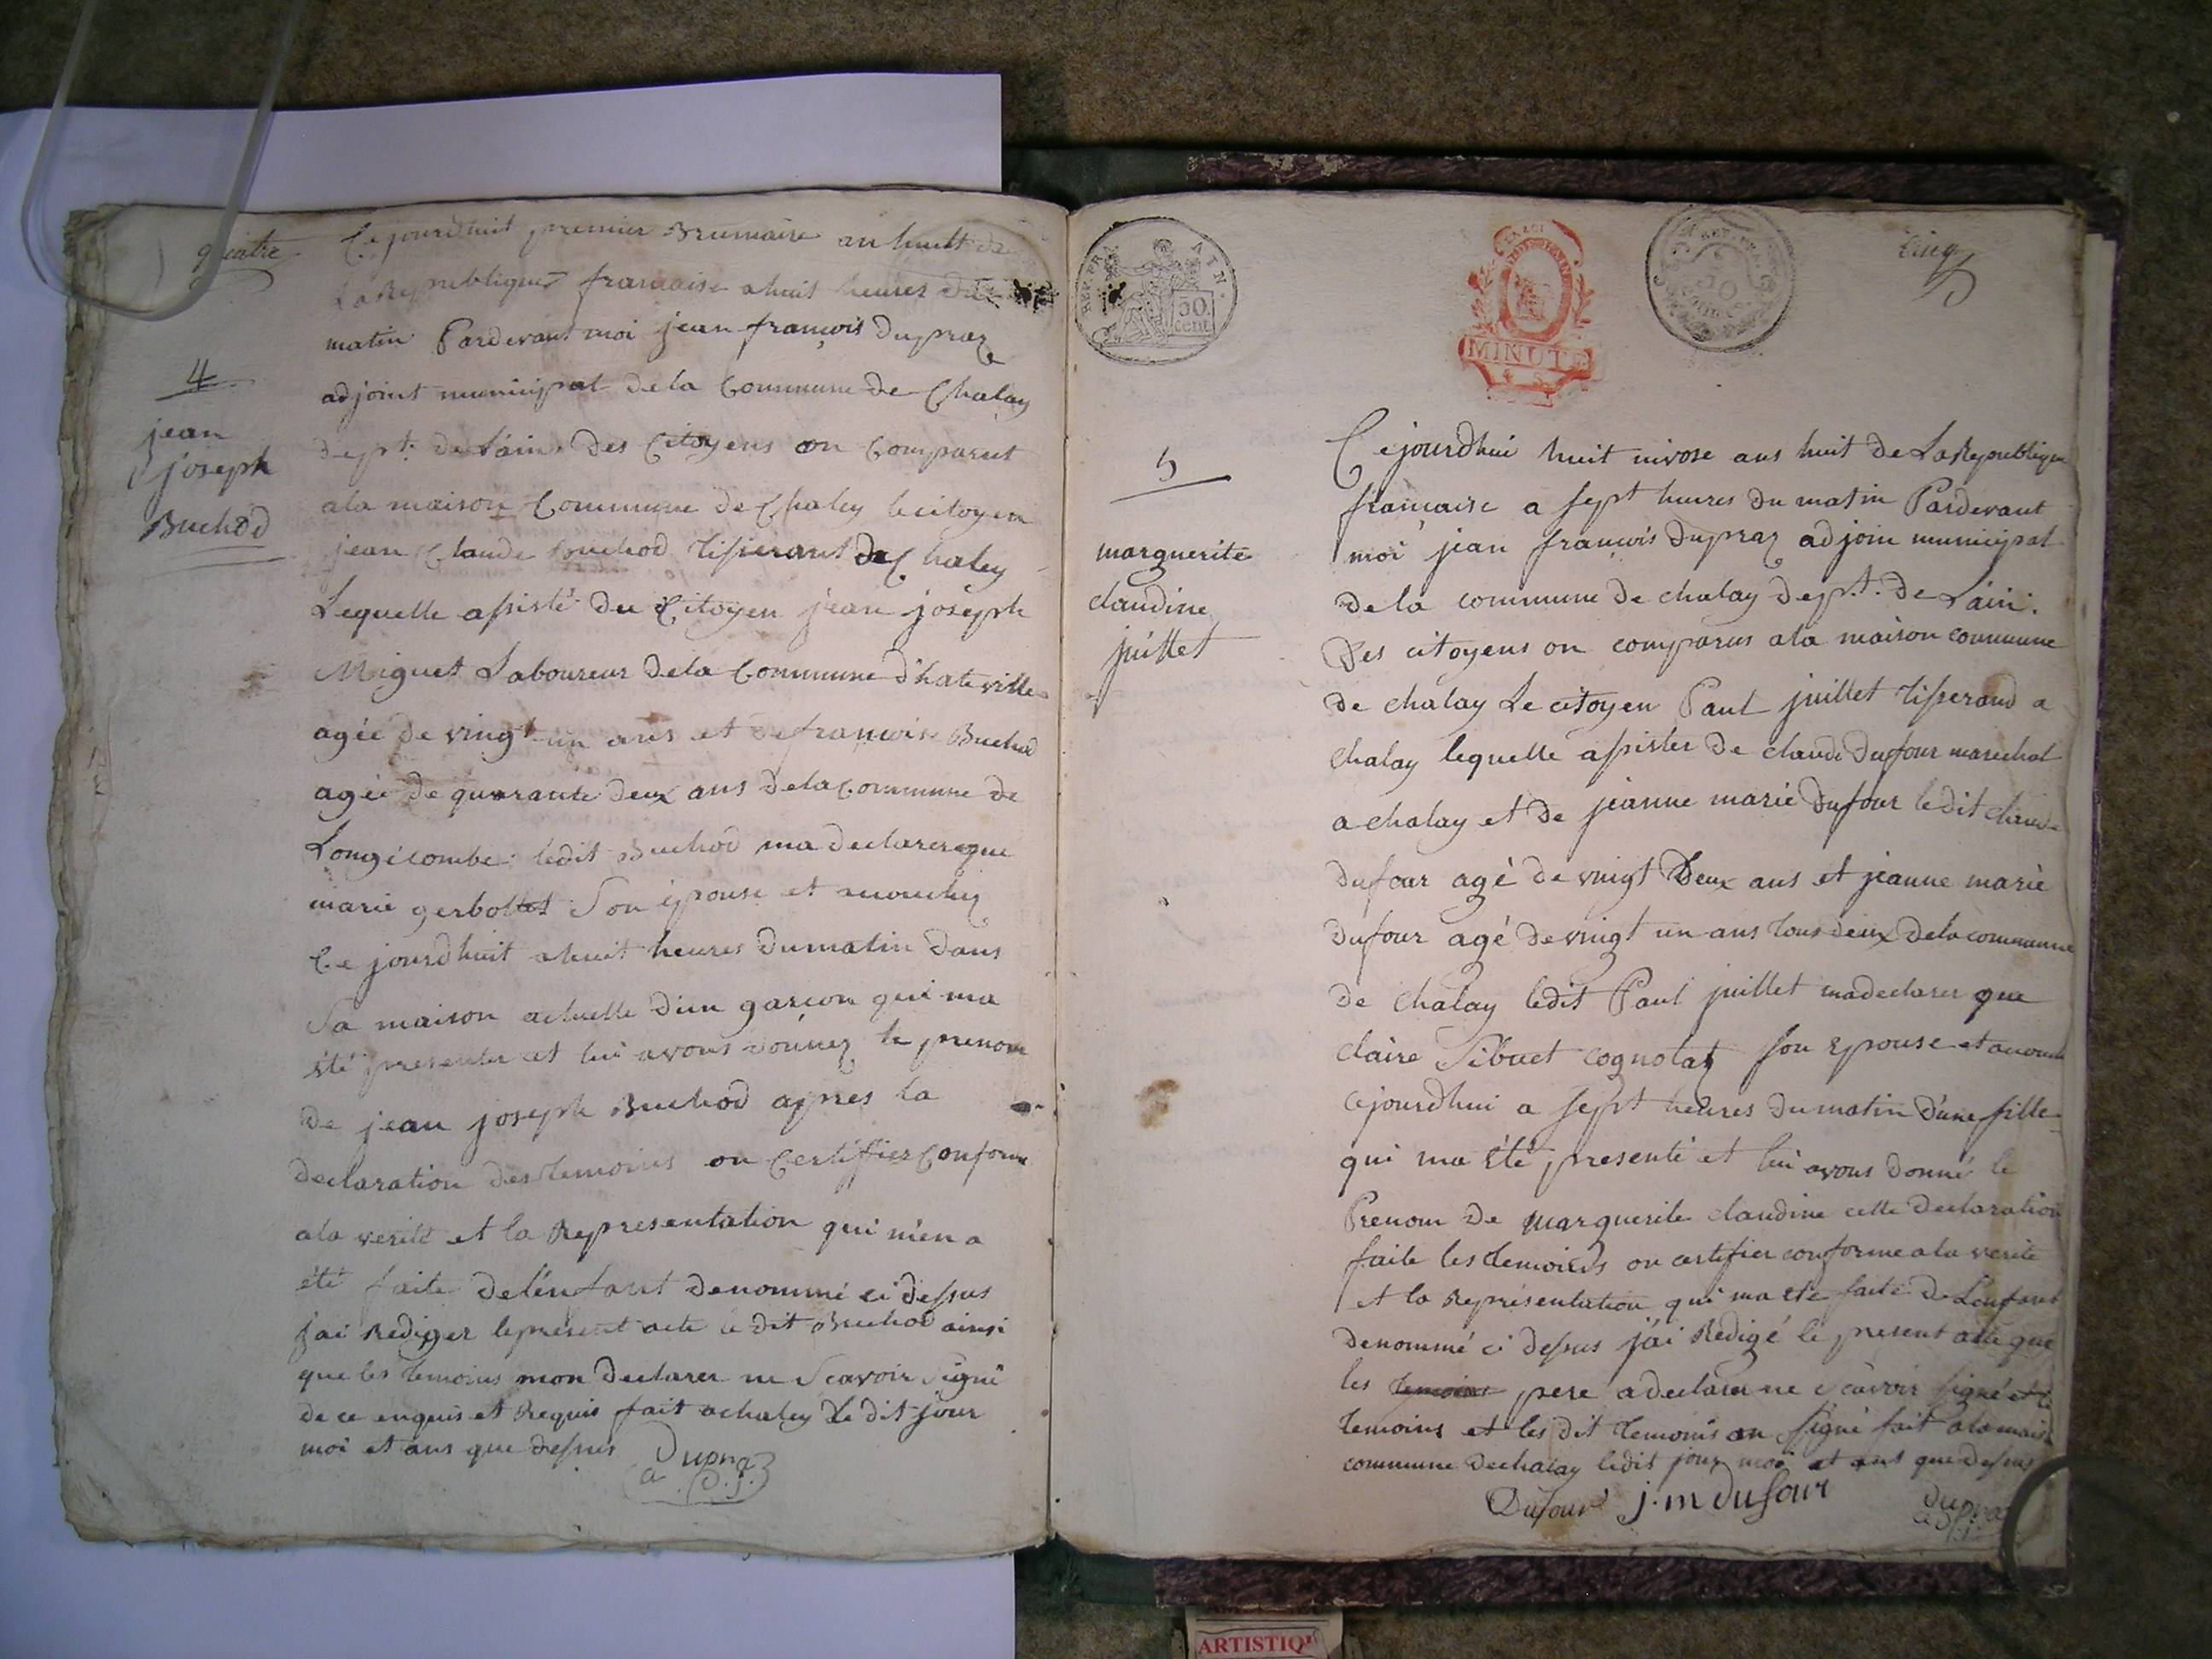 quatre
Ce jourdhuit premier Brumaire an huit de
La Republique francaise a huit heures du
matin Pardevant moi jean françois Dupraz
adjoint municipal de la Commune de Chaley
dept. de Lain. Des Citoyens on Comparut
ala maison Commune de Chaley le citoyen
jean Claude buchod Tisserant de Chaley
Lequelle assisté du Citoyen jean joseph
Miguet Laboureur de la Commune d'hateville
agée de vingt un ans et de francoise Buchod
agée de quarante deux ans dela Commune de
Longecombe ledit Buchod ma declarer que
marie gerbollet Son épouse et accouchez
Ce jourdhuit a huit heures du matin dans
Sa maison actuelle d'un garcon qui ma
été presenter et lui avons donnez le prenom
De jean joseph Buchod apres la
declaration des temoins on Certifier Conforme
ala verité et la Representation qui m'en a
été faite de l'enfant denommé ci dessus
j'ai Rediger le present acte le dit Buchod ainsi
que les temoins mon declarer ne Scavoir Signé
de ce enquis et Requis fait a chaley Le dit jour
moi et ans que dessus Dupraz
a. d. j.
4
jean
joseph
Buchod
REP. FRA
AIN.
50.
cent.
LA LOI
MINUTE
REP. FRA.
50
Cinq
5
marguerite
claudine
juillet
Cejourdhui huit nivose ans huit de La Republique
française a sept heures du matin Pardevant
moi jean françois Dupraz adjoin municipal
de la commune de chalay dept. de Lain.
Des citoyens on comparus ala maison commune
de chalay Le citoyen Paul juillet Tisserand a
chalay lequelle assister de claude Dufour marechal
a chalay et de jeanne marie Dufour ledit claude
dufour agé de vingt Deux ans et jeanne marie
dufour agé de vingt un ans tous deux dela commune
de chalay ledit Paul juillet ma declarer que
claire Sibuet cognolat son Epouse et accouche
cejourdhui a sept heures du matin d'une fille
qui ma été presenté et lui avons donné le
Prenom de marguerite claudine cette Declaration
faite les temoins on certifier conforme ala verité
et la Représentation qui ma été faite de Lenfant
denommé ci dessus j'ai Redigé le present acte que
les temoins pere a declarer ne scavoir signé et le
temoins et les dit temoins on signé fait ala maison
commune de chalay ledit jour moi et ans que dessus
Dufour j. m dufour dupraz
ARTISTIQ